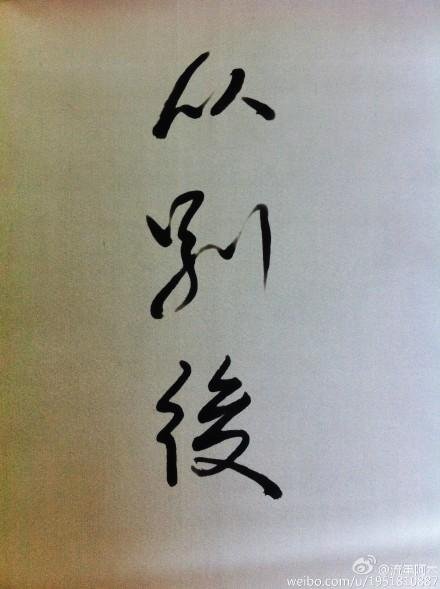 从别後
@流年阿木
weibo.com/u/1951810887